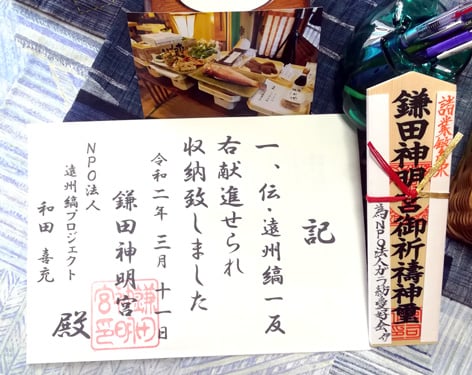 記
一、伝・遠州縞一反
右献進せられ
収納致しました
令和二年三月十一日
鎌田神明宮
NPO法人
遠州縞プロジェクト
和田喜充
殿
鎌田神明宮御祈禱神璽
為NPO法人ガラ紡愛好会